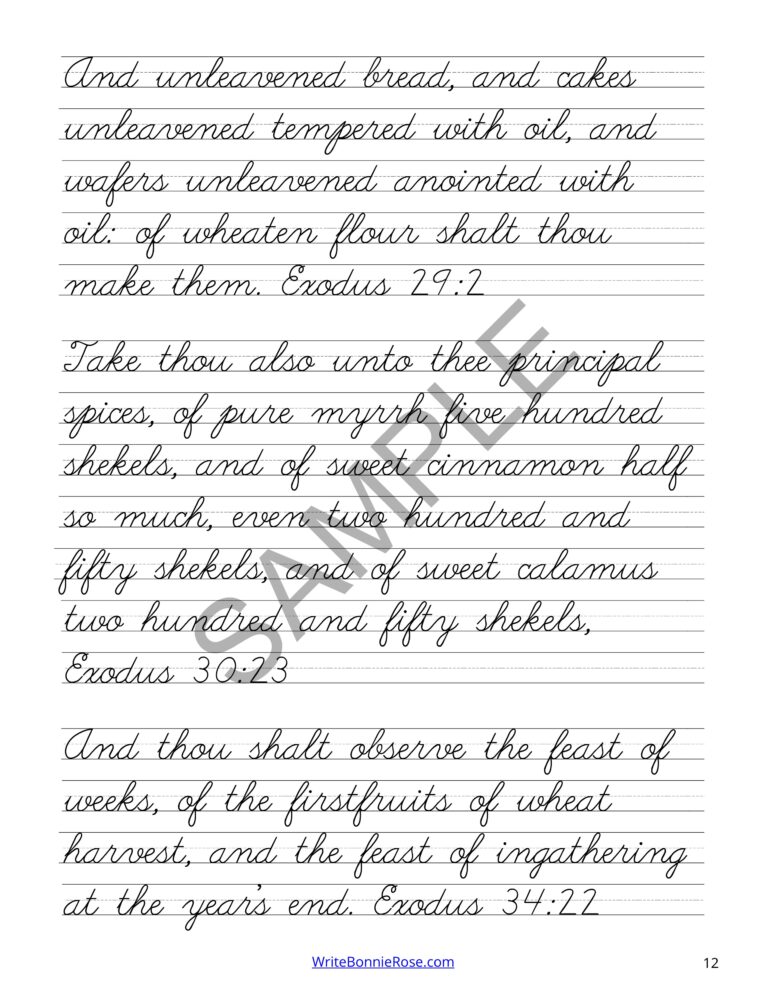 And unleavened bread, and cakes
unleavened tempered with oil, and
wafers unleavened anointed with
oil: of wheaten flour shalt thou
make them. Exodus 29:2
Take thou also unto thee principal
spices, of pure myrrh five hundred
shekels, and of sweet cinnamon half
so much, even two hundred and
fifty shekels, and of sweet calamus
two hundred and fifty shekels,
Exodus 30:23
And thou shalt observe the feast of
weeks, of the firstfruits of wheat
harvest, and the feast of ingathering
at the year's end. Exodus 34:22
SAMPLE
WriteBonnieRose.com
12